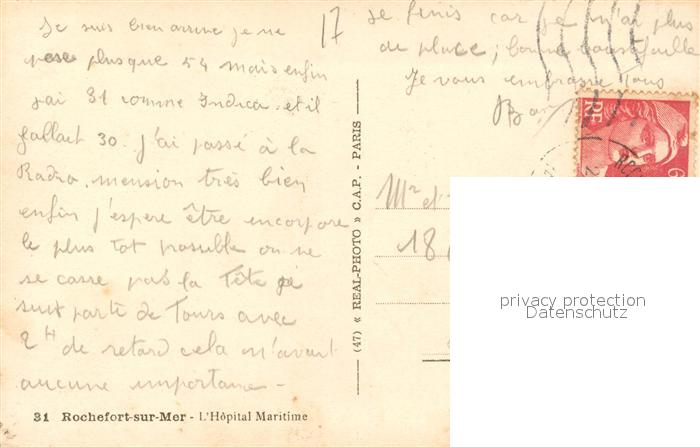 Je suis bien arrivé je ne
pese plus que 54 mais enfin
j'ai 31 comme Indice et il
fallait 30. J'ai passé à la
Radio, mension très bien
enfin j'espere être incorpore
le plus tot possible on ne
se casse pas la Tête je
suis parti de Tours avec
2H de retard cela n'avait
aucune importance -
17
Je finis car je n'ai plus
de place ; bonne
Je vous embrasse tous
(47) « REAL-PHOTO » C.A.P. - PARIS
RF
Mr et
18
privacy protection
Datenschutz
31 Rochefort-sur-Mer - L'Hôpital Maritime